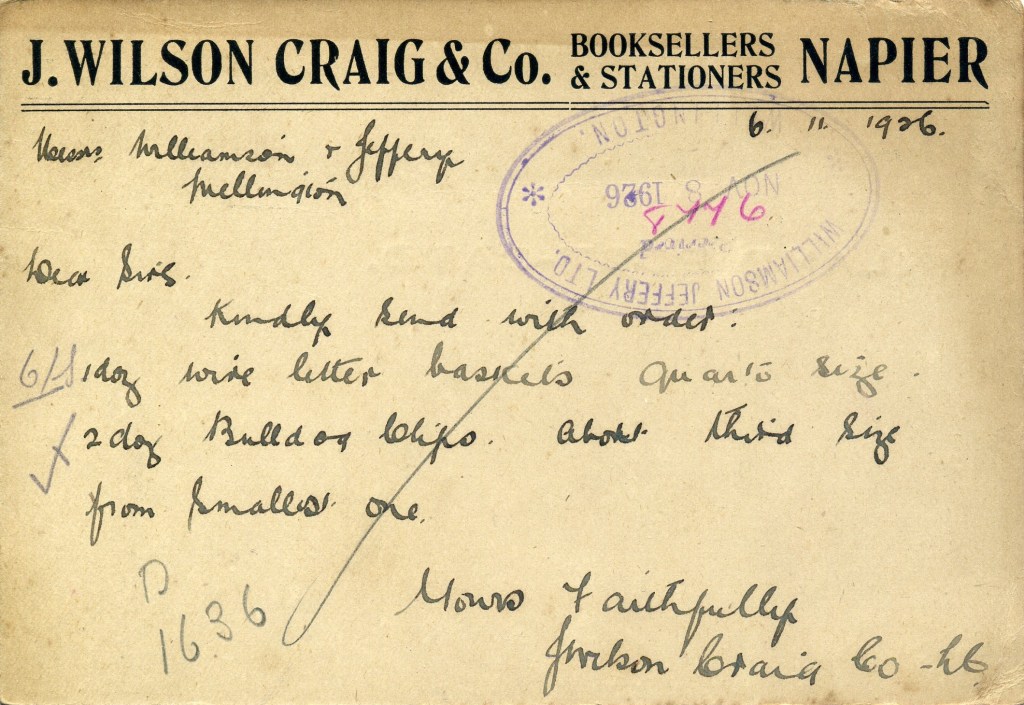 J. WILSON CRAIG & Co. BOOKSELLERS & STATIONERS NAPIER
6. 11. 1926.
Messrs Williamson & Jeffery
Wellington
WILLIAMSON JEFFERY LTD.
WELLINGTON.
* NOV 8 1926
Received
8446
Dear Sirs.
Kindly send with order:
1 doz wire letter baskets Quarto size.
2 doz Bulldog Clips. about third size
from smallest one.
D
1636
Yours Faithfully
JWilson Craig Co